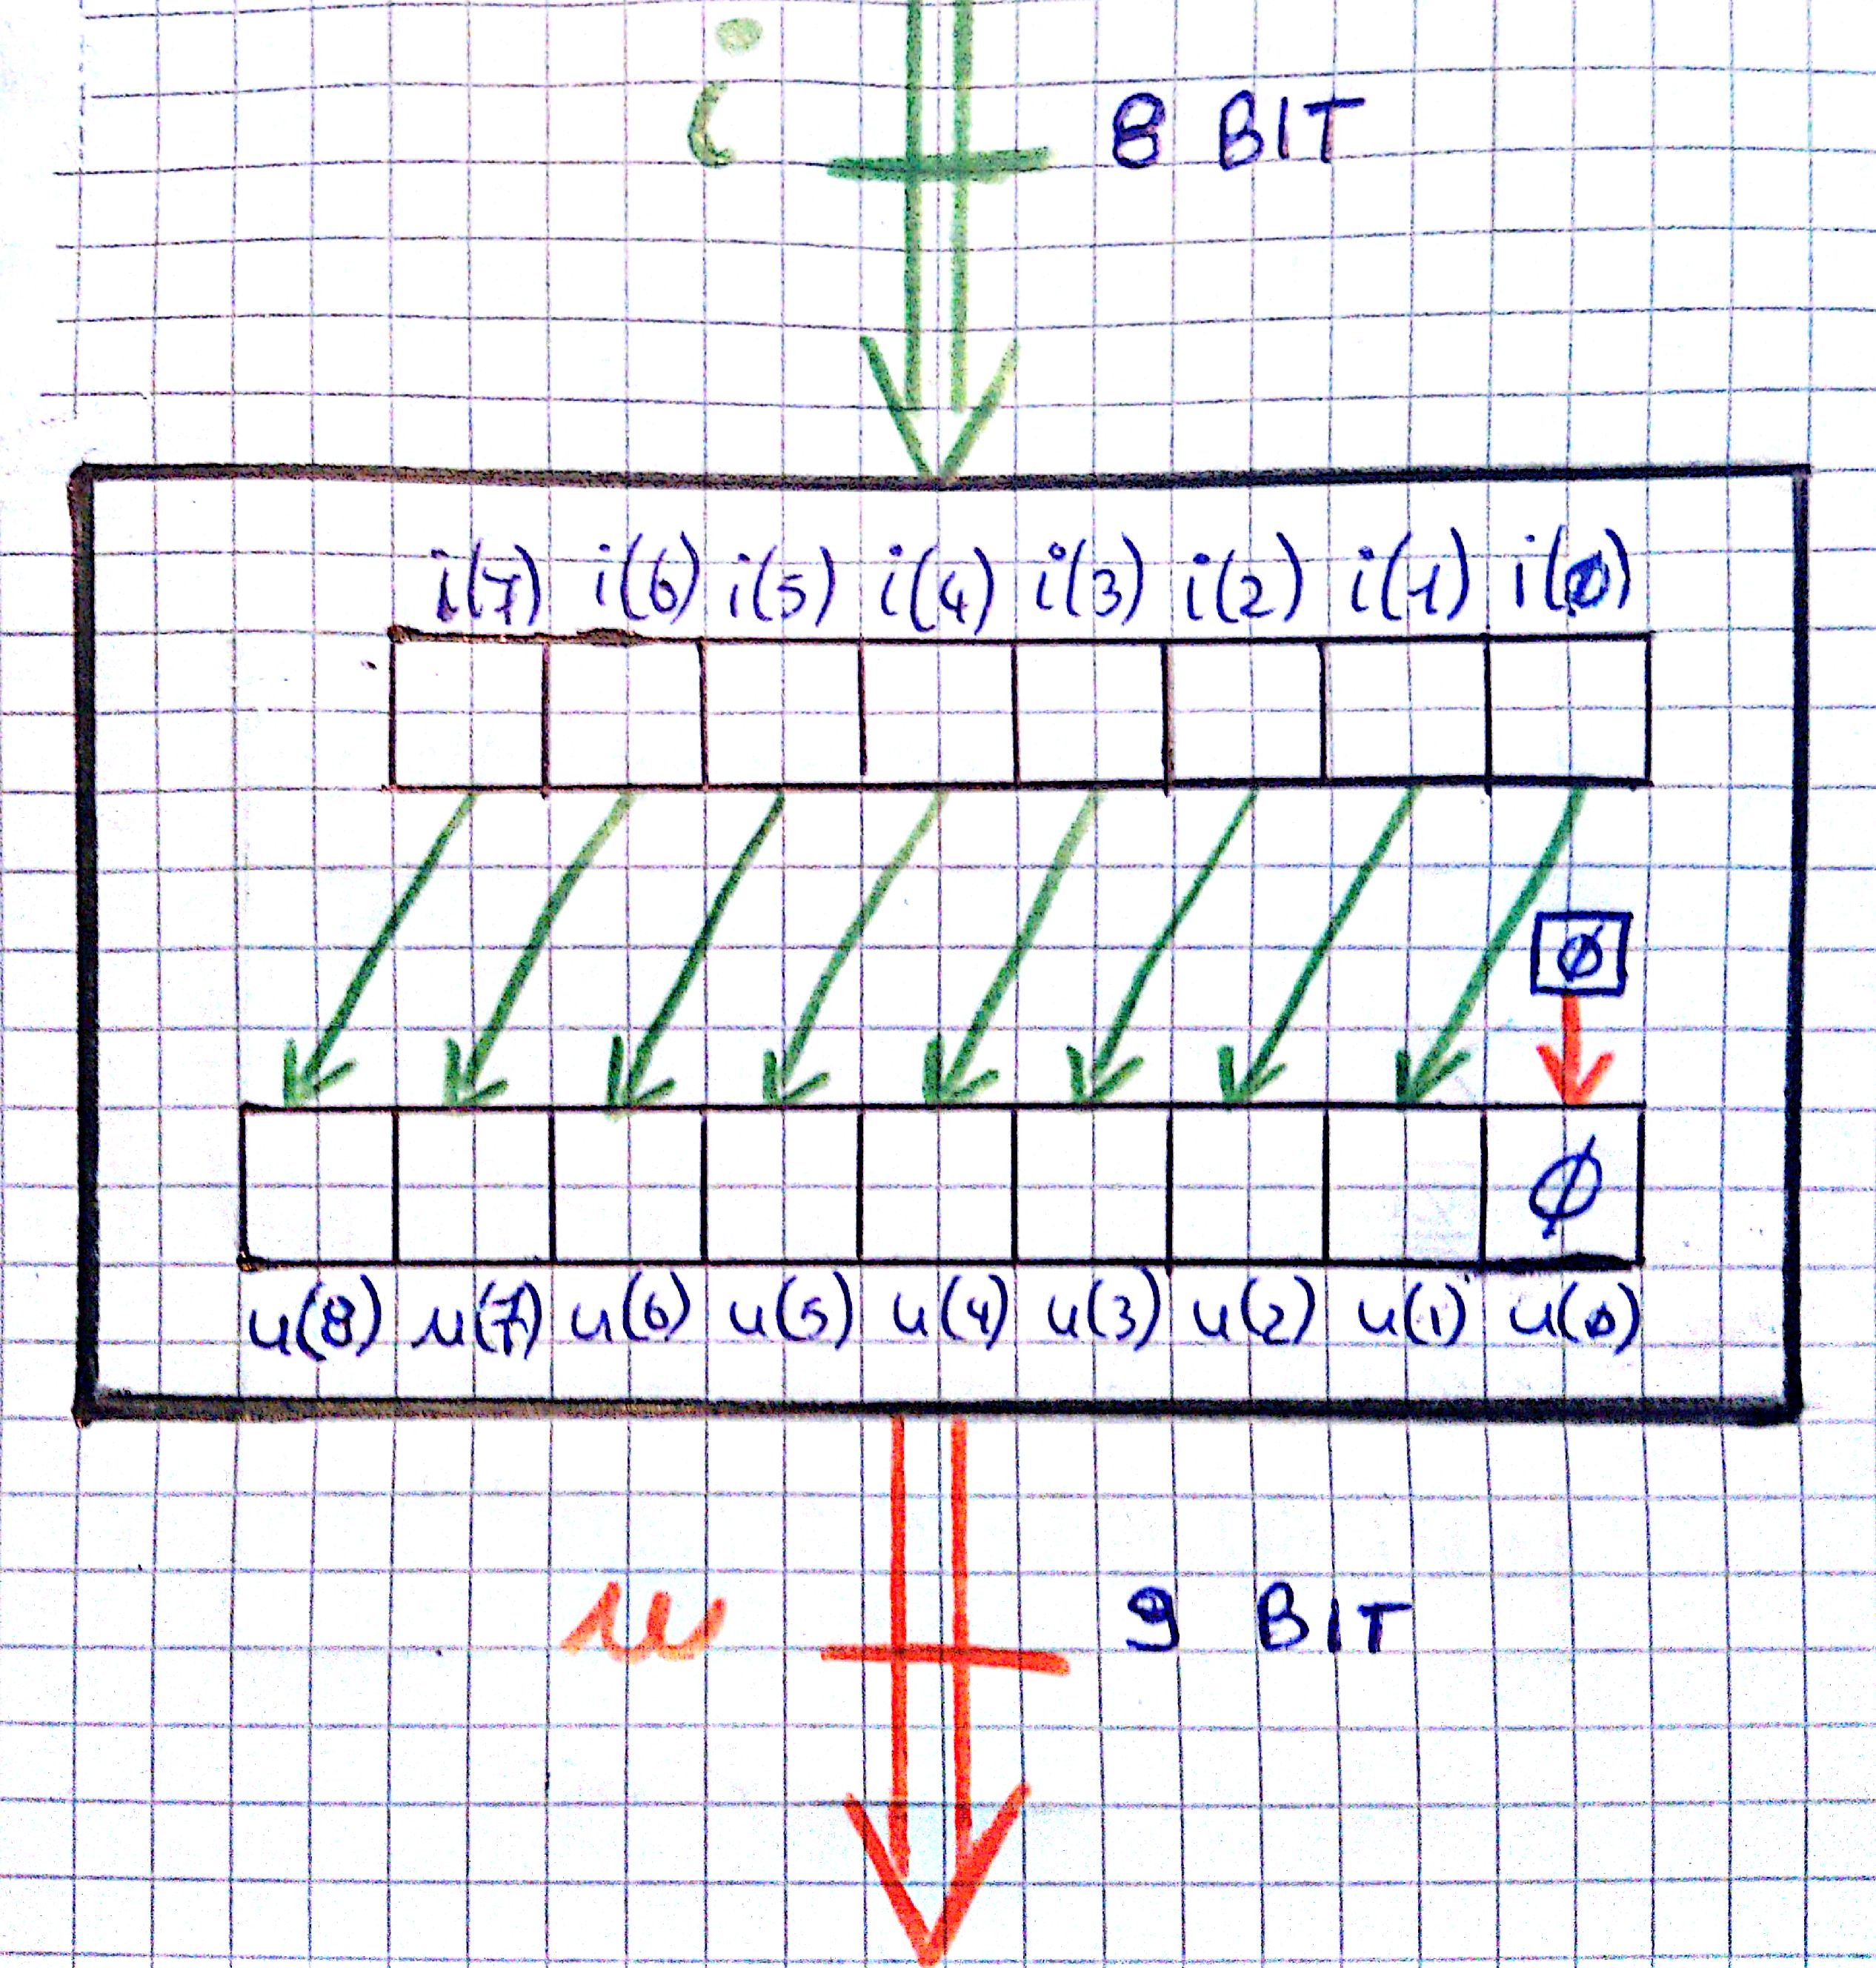 i 8 BIT
i(7) i(6) i(5) i(4) i(3) i(2) i(1) i(0)
Ø
Ø
u(8) u(7) u(6) u(5) u(4) u(3) u(2) u(1) u(0)
u 9 BIT